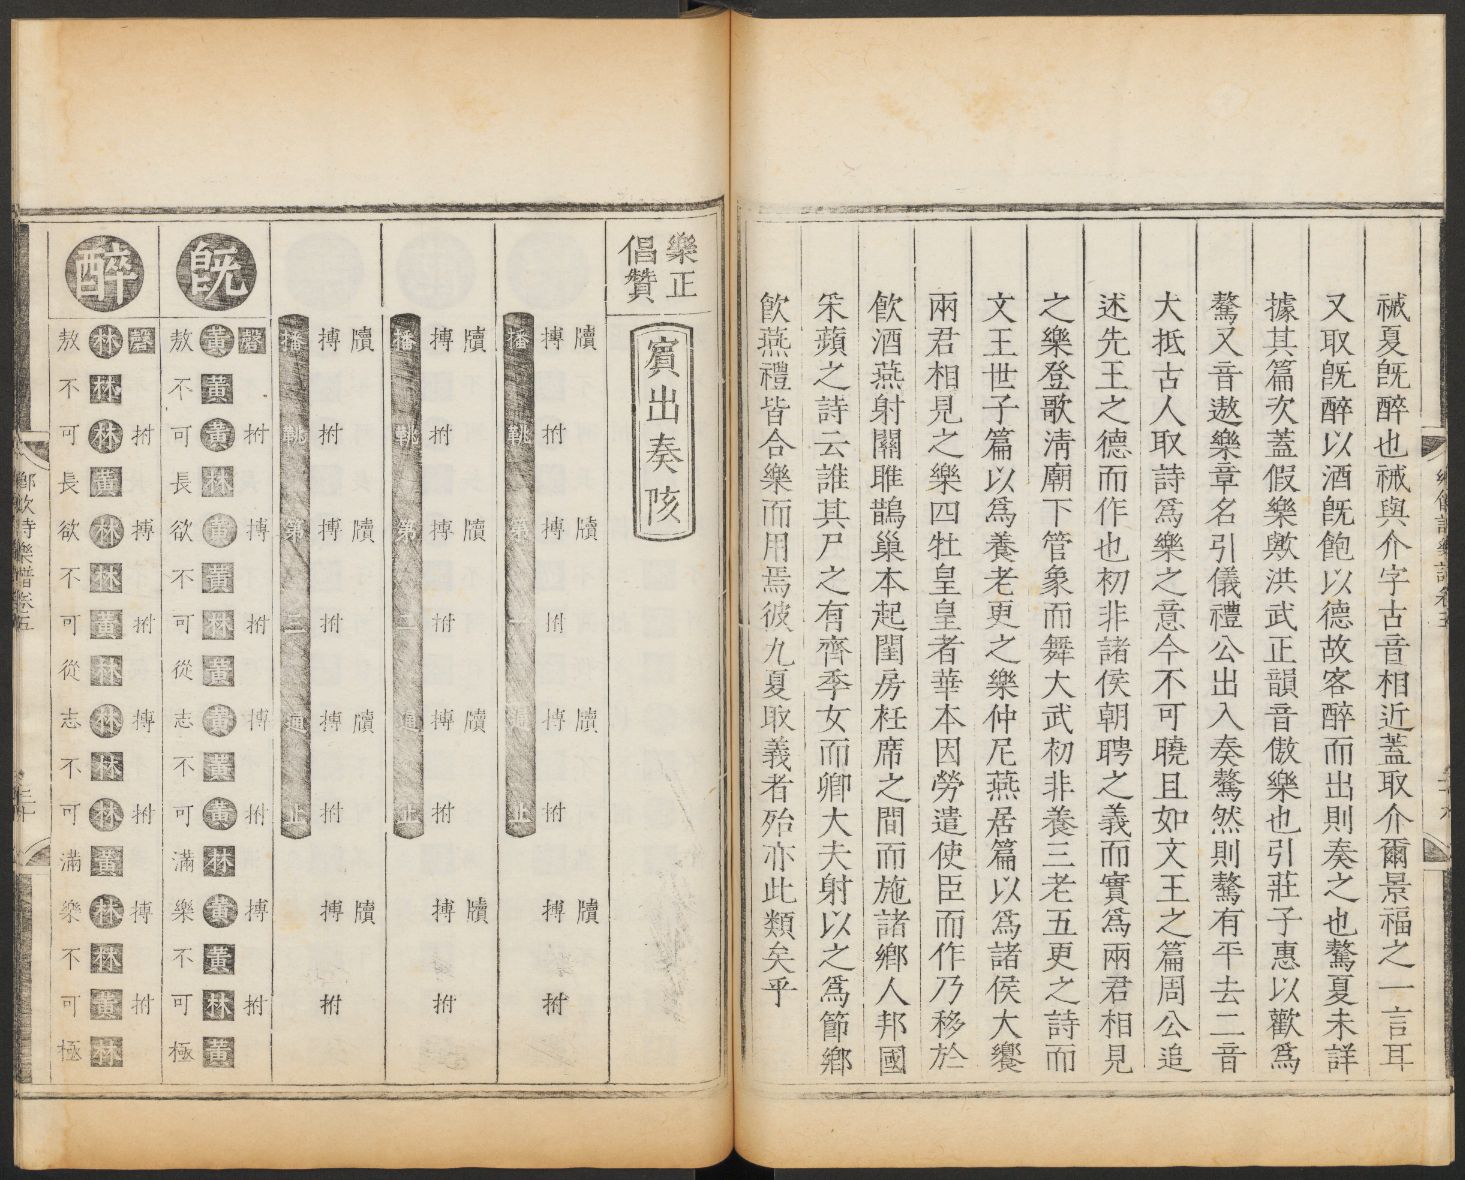 祴夏旣醉也祴與介字古音相近蓋取介爾景福之一言耳
又取旣醉以酒旣飽以德故客醉而出則奏之也驁夏未詳
據其篇次蓋假樂歟洪武正韻音傲樂也引莊子惠以歡爲
驁又音遨樂章名引儀禮公出入奏驁然則驁有平去二音
大抵古人取詩爲樂之意今不可曉且如文王之篇周公追
述先王之德而作也初非諸侯朝聘之義而實爲兩君相見
之樂登歌淸廟下管象而舞大武初非養三老五更之詩而
文王世子篇以爲養老更之樂仲尼燕居篇以爲諸侯大饗
兩君相見之樂四牡皇皇者華本因勞遣使臣而作乃移於
飮酒燕射關雎鵲巢本起閨房袵席之間而施諸鄉人邦國
采蘋之詩云誰其尸之有齊季女而卿大夫射以之爲節鄉
飮燕禮皆合樂而用焉彼九夏取義者殆亦此類矣乎
樂正
倡贊
賓出奏陔
牘 牘 牘 牘
搏 拊 搏 拊 搏 拊 搏 拊
播 鼗 第 一 通 止
牘 牘 牘 牘
搏 拊 搏 拊 搏 拊 搏 拊
播 鼗 第 二 通 止
牘 牘 牘 牘
搏 拊 搏 拊 搏 拊 搏 拊
播 鼗 第 三 通 止
旣
磬 拊 搏 拊 搏 拊 搏 拊
黃 黃 黃 林 黃 黃 林 黃 黃 黃 黃 林 黃 黃 林 黃
敖 不 可 長 欲 不 可 從 志 不 可 滿 樂 不 可 極
醉
磬 拊 搏 拊 搏 拊 搏 拊
林 林 林 黃 林 林 黃 林 林 林 林 黃 林 林 黃 林
敖 不 可 長 欲 不 可 從 志 不 可 滿 樂 不 可 極
鄉飮詩樂譜卷五